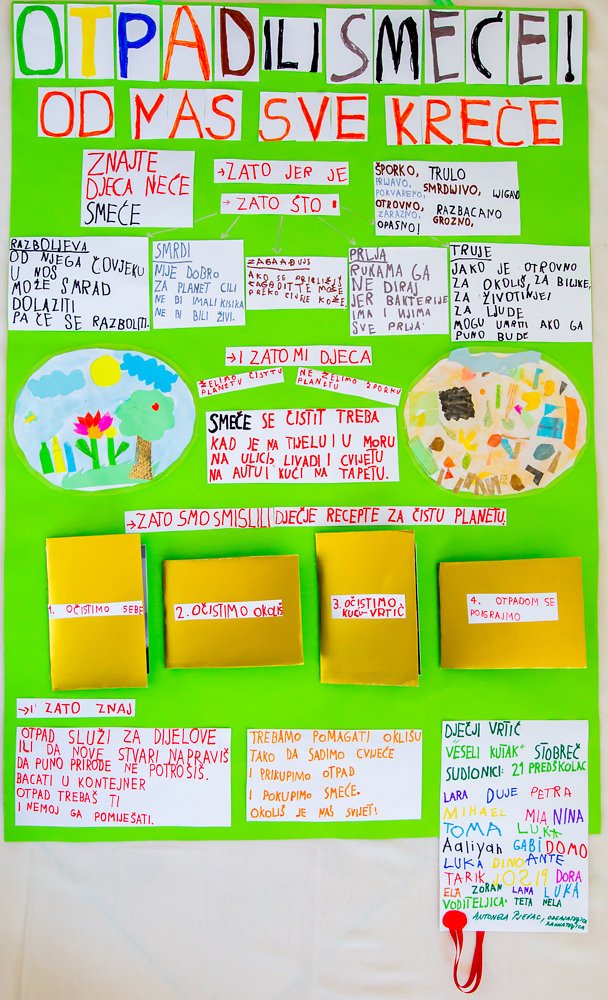 OTPAD ILI SMEĆE!
OD NAS SVE KREĆE
ZNAJTE
DJECA NEĆE
SMEĆE
→ZATO JER JE
→ ZATO ŠTO
ŠPORKO, TRULO
PRLJAVO, SMRDLJIVO,
POKVARENO,
OTROVNO, RAZBACANO
ZARAZNO, GROZNO,
OPASNO!
RAZBOLJEVA
OD NJEGA ČOVJEKU
U NOS
MOŽE SMRAD
DOLAZITI
PA ĆE SE RAZBOLITI.
SMRDI
NIJE DOBRO
ZA PLANET CILI
NE BI IMALI KISIKA
NE BI BILI ŽIVI.
ZAGAĐUJE
AKO SE PRIBLIŽIŠ
MOŽE
PREKO CIJELE KOŽE.
PRLJA
RUKAMA GA
NE DIRAJ
JER BAKTERIJE
IMA I NJIMA
SVE PRLJA
TRUJE
JAKO JE OTROVNO
ZA OKOLIŠ, ZA BILJKE,
ZA ŽIVOTINJE I
ZA LJUDE
MOGU UMRITI AKO GA
PUNO BUDE
→I ZATO MI DJECA
ŽELIMO ČISTU
PLANETU
NE ŽELIMO ŠPORKU
PLANETU
SMEĆE SE ČISTIT TREBA
KAD JE NA TIJELU I U MORU
NA ULICI, LIVADI I CVIJETU
NA AUTU I KUĆI NA TAPETU.
→ZATO SMO SMISLILI DJEČJE RECEPTE ZA ČISTU PLANETU.
1. OČISTIMO SEBE
2. OČISTIMO OKOLIŠ
3. OČISTIMO
KUĆU-VRTIĆ
4. OTPADOM SE
POIGRAJMO
→I ZATO ZNAJ
OTPAD SLUŽI ZA DIJELOVE
ILI DA NOVE STVARI NAPRAVIŠ
DA PUNO PRIRODE NE POTROŠIŠ.
BACATI U KONTEJNER
OTPAD TREBAŠ TI
I NEMOJ GA POMIJEŠATI.
TREBAMO POMAGATI OKLIŠU
TAKO DA SADIMO CVIJEĆE
I PRIKUPIMO OTPAD
I POKUPIMO SMEĆE.
OKOLIŠ JE NAŠ SVIJET!
DJEČJI VRTIĆ
"VESELI KUTAK" STOBREČ
SUDIONICI: 21 PREDŠKOLAC
LARA DUJE PETRA
MIHAEL MIA NINA
TOMA LUKA
Aaliyah GABI DOMO
LUKA DINO ANTE
TARIK DORA
ELA ZORAN LANA LUKA
VODITELJICA: TETA NELA
ANTONELA